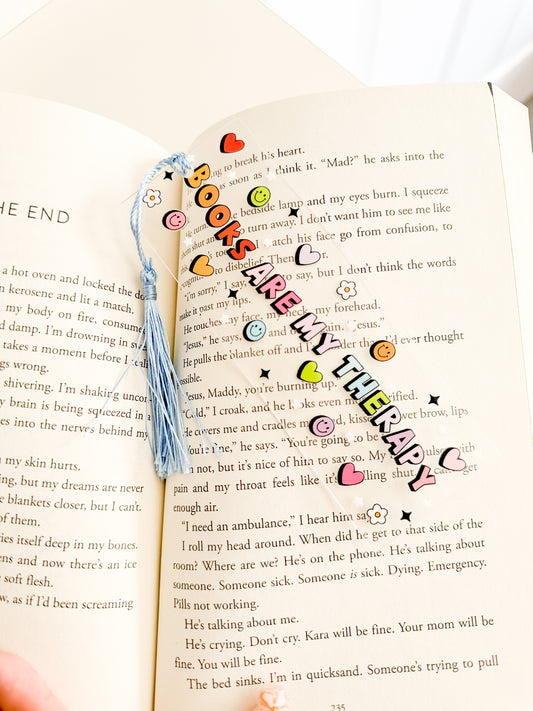 HE END
a hot oven and locked the do
n kerosene and lit a match.
my body on fire, consume
d damp. I'm drowning in sw
takes a moment before I
ngs wrong.
shivering. I'm shaking uncon
y brain is being squeezed in a
es into the nerves behind my
my skin hurts.
ng, but my dreams are never
e blankets closer, but I can't.
of them.
ries itself deep in my bones.
ens and now there's an ice
soft flesh.
w, as if I'd been screaming
BOOKS ARE MY THERAPY
ng to break his heart.
is soon as I think it. "Mad?" he asks into the
bedside lamp and my eyes burn. I squeeze
turn away. I don't want him to see me like
watch his face go from confusion, to
to disbelief. Then
"I'm sorry," I say, to say, but I don't think the words
make it past my lips.
He touches my face, my neck, my forehead.
"Jesus," he says, "Jesus."
He pulls the blanket off and I ever thought
possible.
"Jesus, Maddy, you're burning up.
"Cold," I croak, and he looks even terrified.
He covers me and cradles my head, kisses over brow, lips
"You're fine," he says. "You're going to be
not, but it's nice of him to say so. My with
pain and my throat feels like it's swelling shut. get
enough air.
"I need an ambulance," I hear him say.
I roll my head around. When did he get to that side of the
room? Where are we? He's on the phone. He's talking about
someone. Someone sick. Someone is sick. Dying. Emergency.
Pills not working.
He's talking about me.
He's crying. Don't cry. Kara will be fine. Your mom will be
fine. You will be fine.
The bed sinks. I'm in quicksand. Someone's trying to pull
235